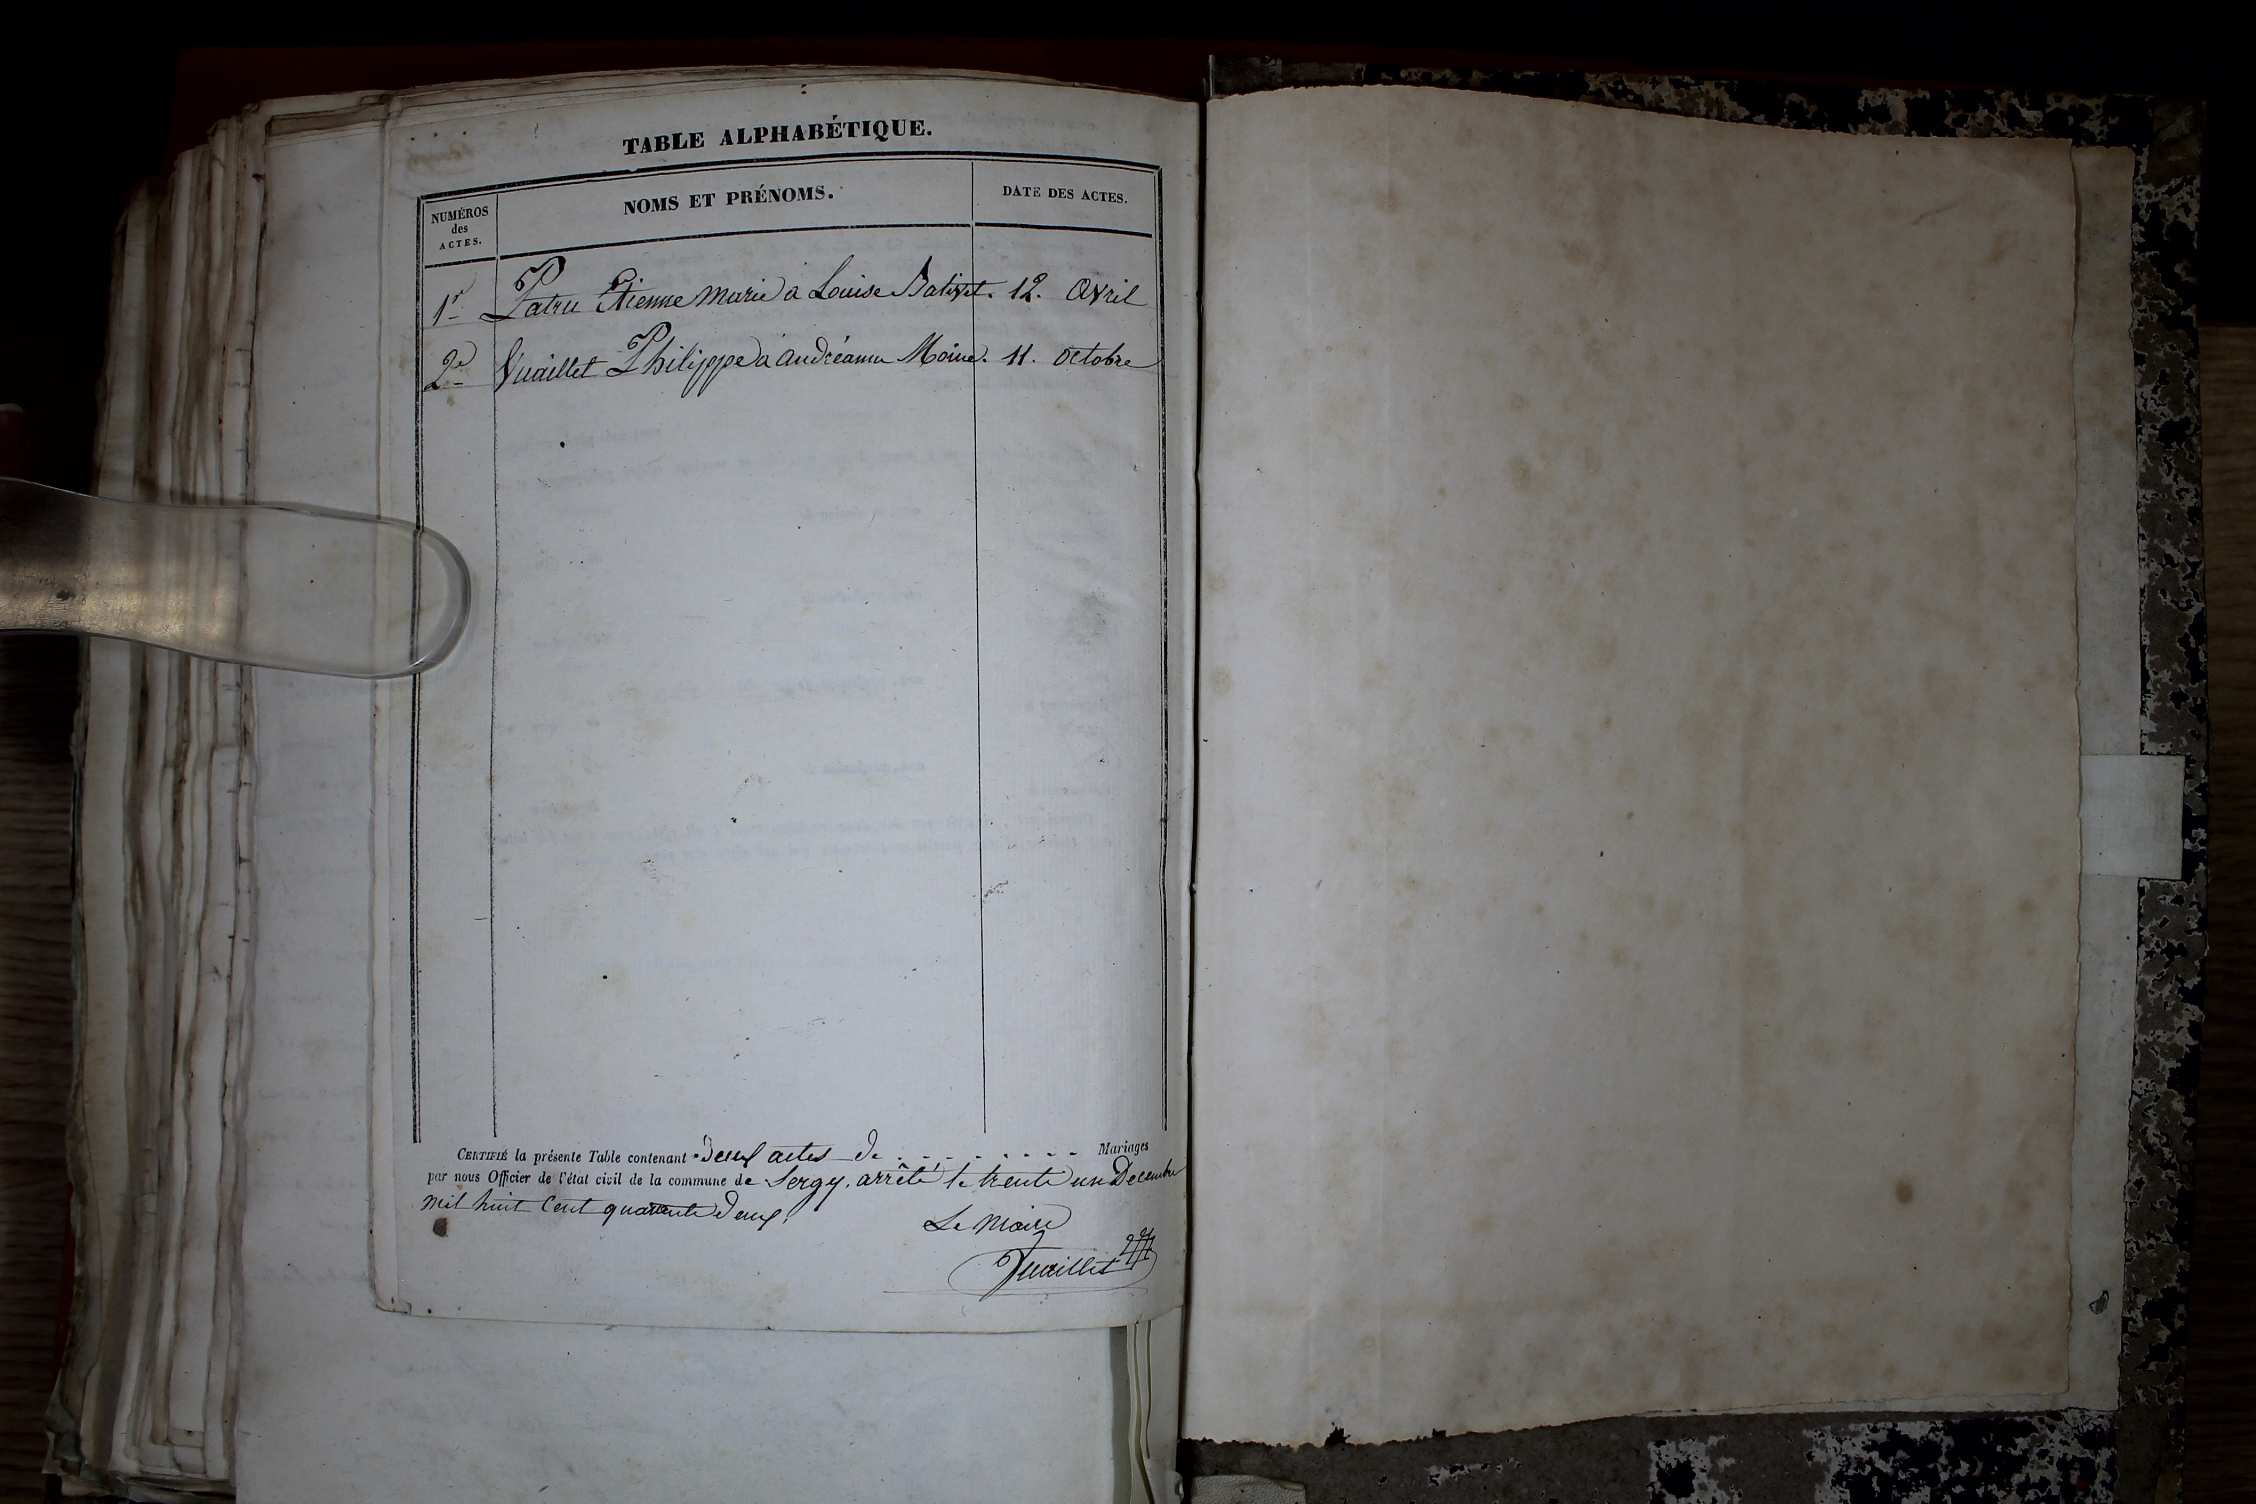 TABLE ALPHABÉTIQUE.
NUMÉROS
des
ACTES.
NOMS ET PRÉNOMS.
DATE DES ACTES.
1r Patru Etienne Marie à Louise Bativet. 12. Avril
2e Vuaillet Philippe à andréanne Moine. 11. octobre
CERTIFIÉ la présente Table contenant Deux actes de . . . . . . . . . Mariages
par nous Officier de l'état civil de la commune de Sergy, arrêté le trente un Decembre
mil huit Cent quarante Deux.
Le Maire
Vuaillet